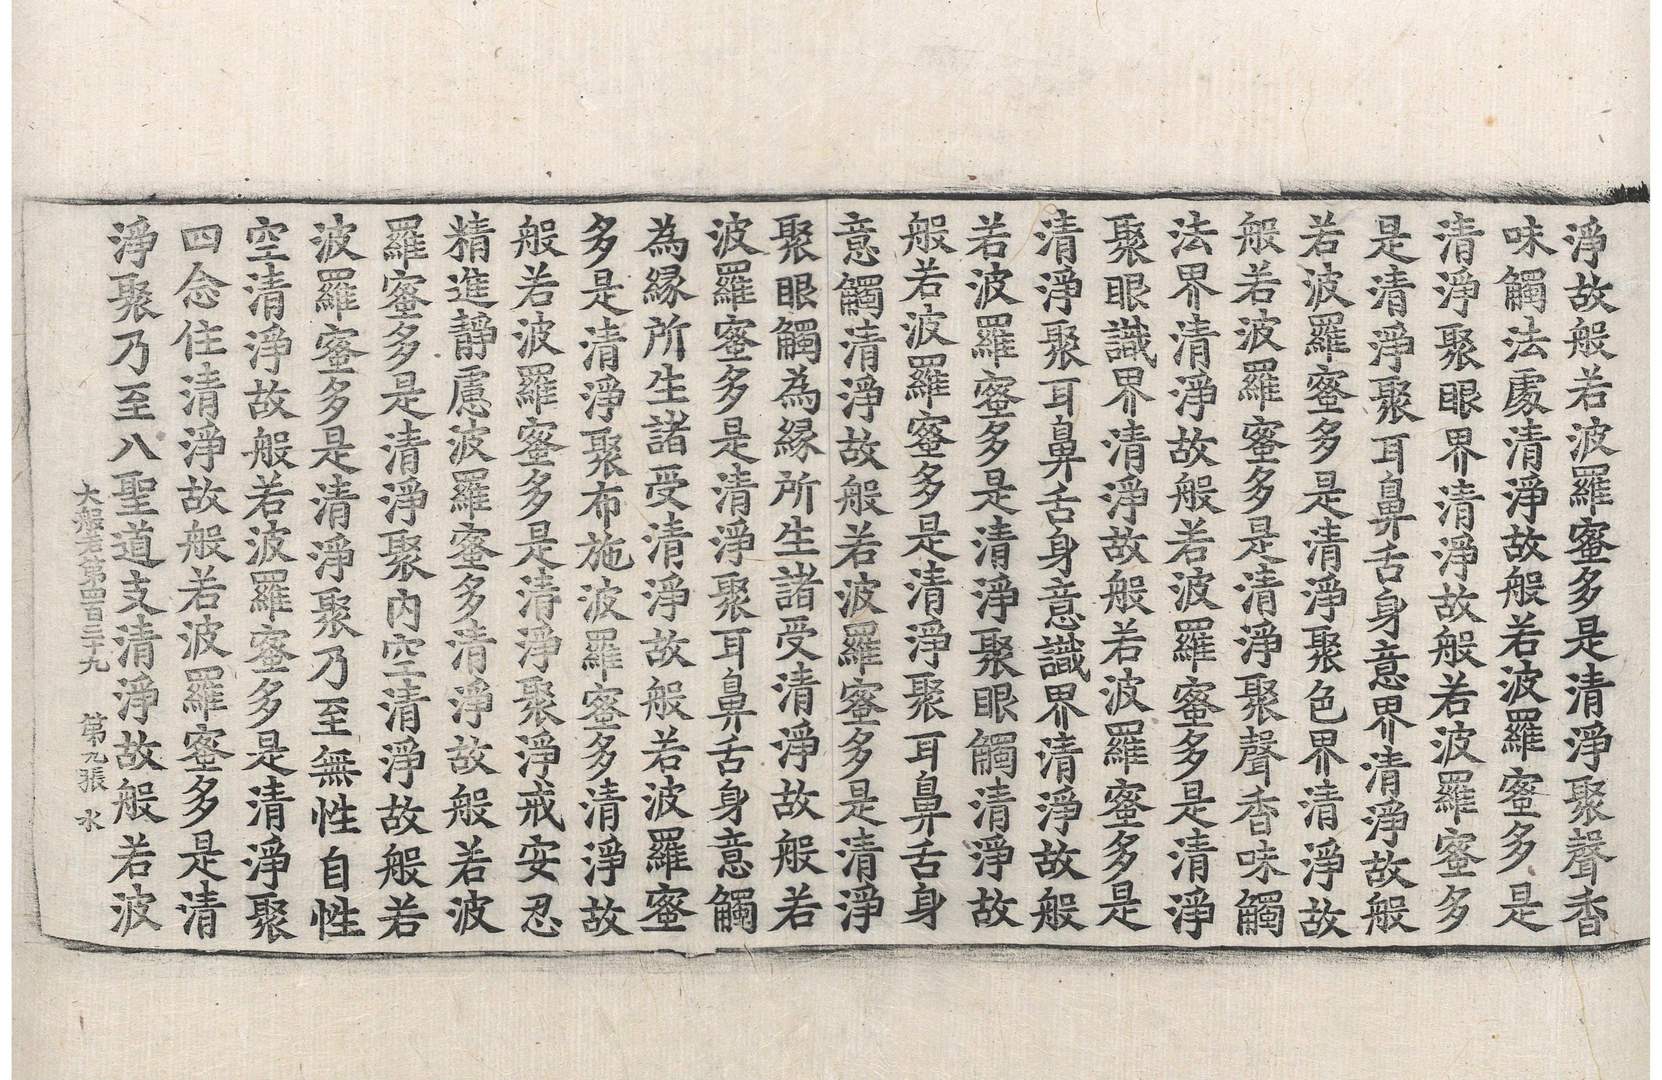 淨故般若波羅蜜多是清淨聚聲香
味觸法處清淨故般若波羅蜜多是
清淨聚眼界清淨故般若波羅蜜多
是清淨聚耳鼻舌身意界清淨故般
若波羅蜜多是清淨聚色界清淨故
般若波羅蜜多是清淨聚聲香味觸
法界清淨故般若波羅蜜多是清淨
聚眼識界清淨故般若波羅蜜多是
清淨聚耳鼻舌身意識界清淨故般
若波羅蜜多是清淨聚眼觸清淨故
般若波羅蜜多是清淨聚耳鼻舌身
意觸清淨故般若波羅蜜多是清淨
聚眼觸為緣所生諸受清淨故般若
波羅蜜多是清淨聚耳鼻舌身意觸
為緣所生諸受清淨故般若波羅蜜
多是清淨聚布施波羅蜜多清淨故
般若波羅蜜多是清淨聚淨戒安忍
精進靜慮波羅蜜多清淨故般若波
羅蜜多是清淨聚內空清淨故般若
波羅蜜多是清淨聚乃至無性自性
空清淨故般若波羅蜜多是清淨聚
四念住清淨故般若波羅蜜多是清
淨聚乃至八聖道支清淨故般若波
大般若第四百三十九 第九張 水